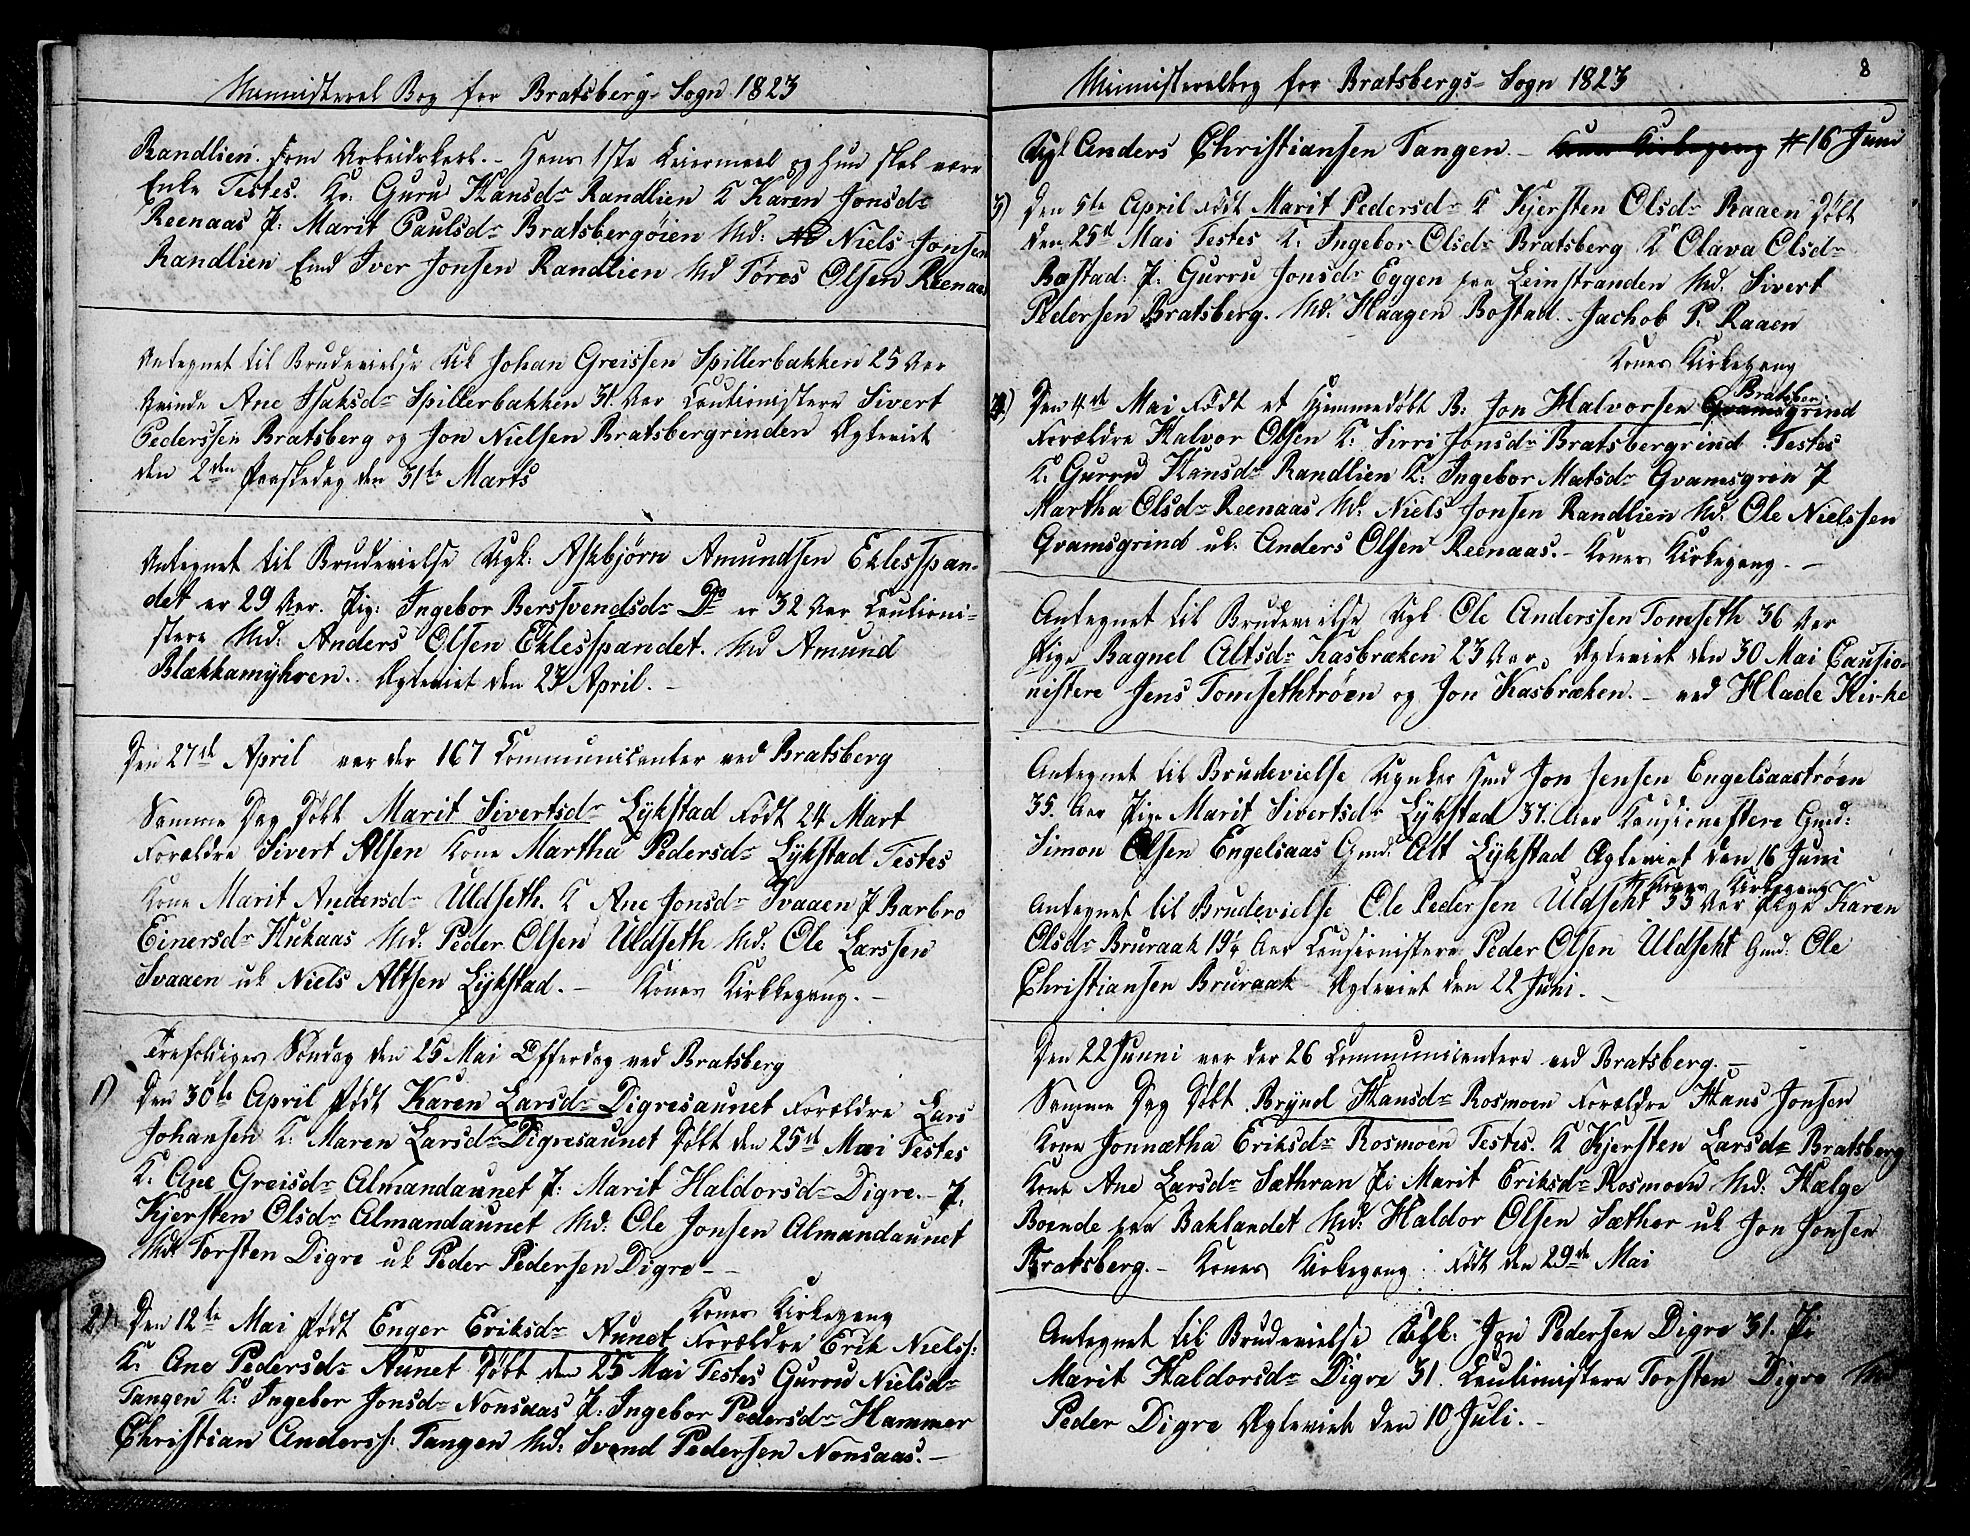 Ministerel Bog for Bratsberg-Sogn 1823
Randlien. som Arbeidskarl. - Hans 1ste Leiermaal og hun skal være
Enke Testes. Ko: Guru Hansdr Randlien K Karen Jonsdr
Reenaas P: Marit Paulsdr Bratsbergøien Md: Niels Jonsen
Randlien Emd Iver Jonsen Randlien Md Tøres Olsen Reenaas
Antegnet til Brudevielse Uk Johan Greissen Spillerbakken 25 Aar
Qvinde Ane Isaksdr Spillerbakken 31. Aar Cautionistere Sivert
Pederssen Bratsberg og Jon Nielsen Bratsbergrinden Ægteviet
den 2den Paaskedag den 31te Marts
Antegnet til Brudevielse Ugk: Askbjørn Amundsen Eklesspan-
det er 29 Aar. Pig: Ingebor Berssvendsdr Do er 32 Aar Cautioni-
stere Md: Anders Olsen Eklesspandet. Md Amund
Blækkamyhren. Ægteviet den 23 April. -
Den 27de April var der 167 Communicanter ved Bratsberg
Samme Dag Døbt Marit Sivertsdr Lykstad Født 24 Mart
Forældre Sivert Alsen Kone Martha Pedersdr Lykstad Testes
Kone Marit Andersdr Uldseth. K Ane Jonsdr Svaaen P Barbro
Einersdr Kukaas Md: Peder Olsen Uldseth Md: Ole Larssen
Svaaen uk Niels Altsen Lykstad. - Kones Kirkkegang. -
Trefoldiges Søndag den 25 Mai Offerdag ved Bratsberg
1) Den 30te April født Karen Larsdr Digresaunet Forældre Lars
Johansen K: Maren Larsdr Digresaunet Døbt den 25de Mai Testes
K: Ane Greisdr Almandaunet P: Marit Haldorsdr Digre. - P:
Kjersten Olsdr Almandaunet Md: Ole Jonsen Almandaunet
Md Torsten Digre uk Peder Pedersen Digre -
Kones Kirkegang
2) Den 12te Mai født Enger Eriksdr Aunet Forældre Erik Nielss:
K: Ane Pedersdr Aunet Døbt den 25 Mai Testes Gurru Nielsdr
Tangen K: Ingebor Jonsdr Nonsaas P: Ingebor Pedersdr Hammer
Christian Anderss: Tangen Md: Svend Pedersen Nonsaas. -
Ministerelbog for Bratsbergs-Sogn 1823
8
Ugk Anders Christiansen Tangen. - Kones Kirkegang # 16 Juni
3) Den 5te April Født Marit Pedersdr K Kjersten Olsdr Raaen Døbt
den 25de Mai Testes K: Ingebor Olsdr Bratsberg K Olava Olsdr
Bostad: P: Gurru Jonsdr Eggen fra Leinstranden Md. Sivert
Pedersen Bratsberg. Md. Haagen Bostad. Jachob P. Raaen
Kones Kirkegang
Bratsber
4) Den 4de Mai Født et Hjemmedøbt B: Jon Halvorsen Qvamsgrind
Forældre Halvor Olsen K: Sirri Jonsdr Bratsbergrind Testes
K: Gurru Hansdr Randlien K: Ingebor Matsdr Qvamsgrin P
Martha Olsdr Reenaas Md: Niels Jonsen Randlien Md. Ole Nielssen
Qvamsgrind uk. Anders Olsen Reenaas. - Kones Kirkegang. -
Antegnet til Brudevielse Ugk Ole Anderssen Tomseth 36 Aar
Pige Ragnel Altsdr Kasbraken 23 Aar. Ægteviet den 30 Mai Causio-
nistere Jens Tomsethtrøen og Jon Kasbraken. - ved Hlade Kirke
Antegnet til Brudevielse Ugkar Hmd Jon Jensen Engelsaastrøen
35. Aar Pige Marit Sivertsdr Lykstad 37. Aar Causionistere Gmd:
Simon Olsen Engelsaas Gmd: Alt Lykstad Ægteviet den 16 Juni
# Kones Kirkegang
Antegnet til Brudevielse Ole Pedersen Uldseht 33 Aar Pige Karen
Olsdr Bruraak 19½ Aar Causionistere Peder Olsen Uldseht Gmd: Ole
Christiansen Bruraak Ægteviet den 22 Juni. -
Den 22 Junni var der 26 Communicantere ved Bratsberg. -
Samme Dag Døbt Brynel Hansdr Rosmoen Forældre Hans Jonsen
Kone Jonnætha Eriksdr Rosmoen Testes. K Kjersten Larsdr Bratsberg
Kone Ane Larsdr Sæthran P: Marit Eriksdr Rosmoen Md: Hælge
Boende paa Baklandet Md: Haldor Olsen Sæther uk Jon Jonsen
Bratsberg. - Kones Kirkegang: Født den 29de Mai
Antegnet til Brudevielse Ugk: Jon Pedersen Digre 31. Pi
Marit Haldorsdr Digre 31. Cautinistere Torsten Digre Md
Peder Digre Ægteviet den 10 Juli. -